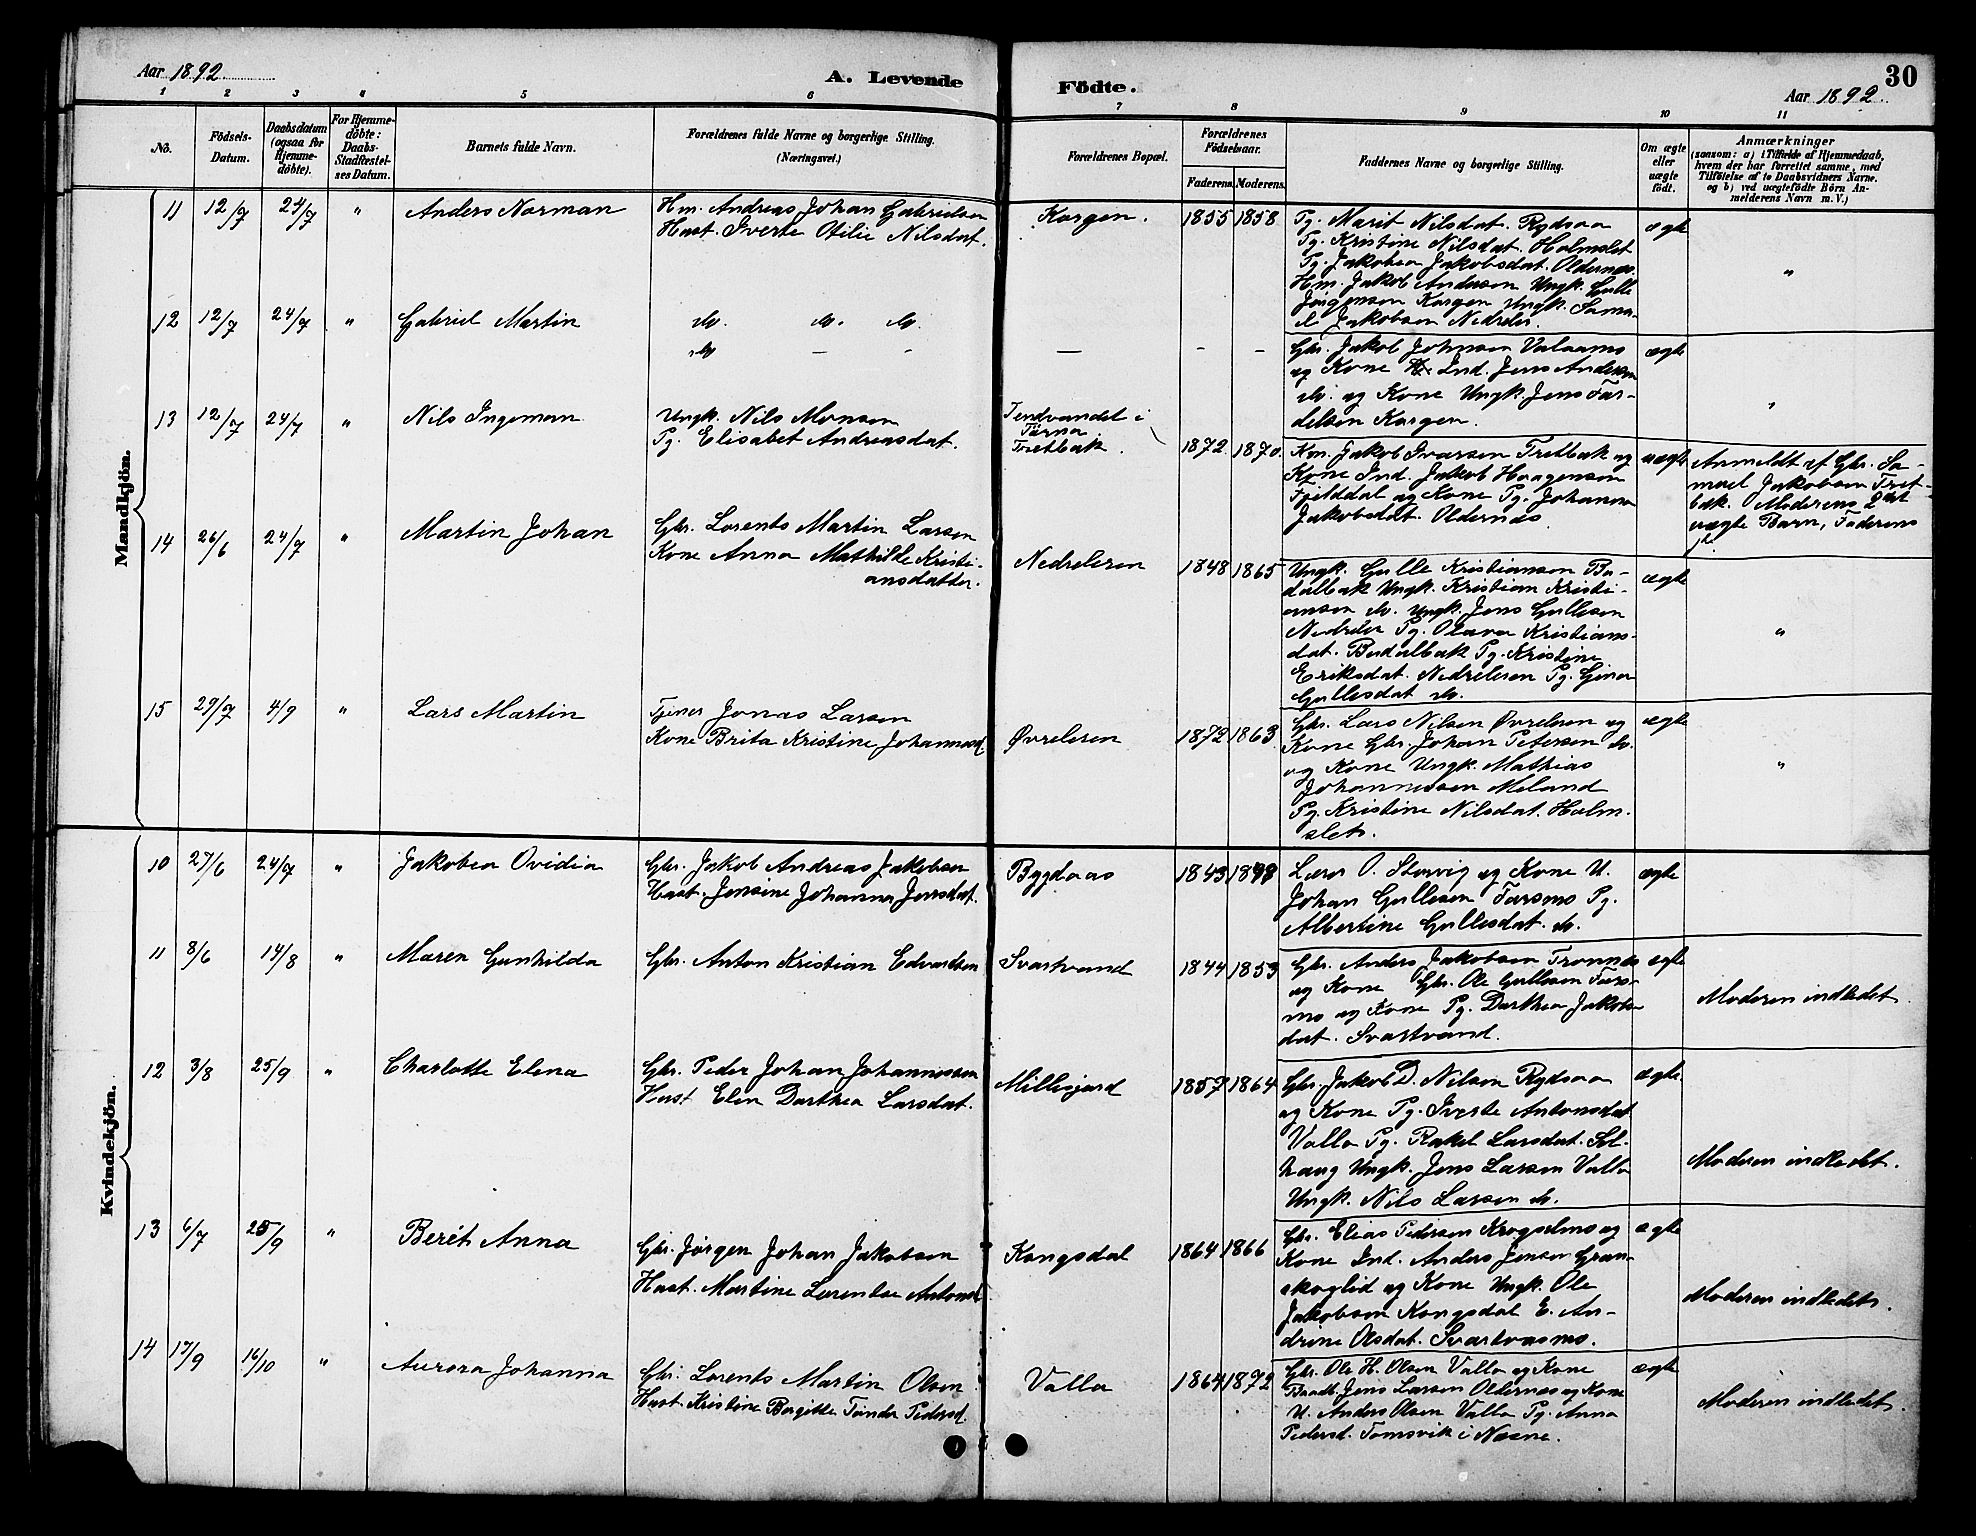 Aar 1892
A. Levende
Födte.
Aar 1892
30
1 2 3 4 5 6 7 8 9 10 11
No.
Födsels-
Datum.
Daabsdatum
(ogsaa for
Hjemme-
döbte).
For Hjemme-
döbte:
Daabs-
Stadfæstel-
ses Datum.
Barnets fulde Navn.
Forældrenes fulde Navne og borgerlige Stilling.
(Næringsvei.)
Forældrenes Bopæl.
Forældrenes
Födselsaar.
Faderens. Moderens.
Faddernes Navne og borgerlige Stilling.
Om ægte
eller
uægte
födt.
Anmærkninger
(saasom: a) i Tilfælde af Hjemmedaab,
hvem der har forrettet samme, med
Tilföielse af to Daabsvidners Navne.
og b) ved uægtefödte Börn An-
melderens Navn m.V.)
Mandkjön.
11 12/7 24/7 " Anders Norman
Hm. Andreas Johan Gabrielsen
Hust. Sverte Otilie Nilsdat.
Korgen. 1855 1858
Pg. Marit Nilsdat. Rydsaa
Pg. Kristine Nilsdat. Holmslet
Pg. Jakobea Jakobsdat. Oldernes.
Hm. Jakob Andersen Ungk. Gulle
Jørgensen Korgen Ungk. Samu-
el Jakobsen Nedreler.
ægte "
12 12/7 24/7 " Gabriel Martin
do. do. do.
do — -
— - -
Gbr. Jakob Johnsen Valaamo
og Kone Ind. Jens Andersen
do. og Kone Ungk. Jens Far-
delsen Korgen.
ægte "
13 12/7 24/7 " Nils Ingeman
Ungk. Nils Monsen
Pg. Elisabet Andreasdat.
Tendvandet i
Tärna
Tretbak. 1872 1870.
Hm. Jakob Ivarsen Tretbak og
Kone Ind. Jakob Haagensen
Fjelddal og Kone Pg. Johanna
Jakobsdat. Oldernes.
uægte
Anmeldt af Gbr. Sa-
muel Jakobsen Tret-
bak. Moderens 2det
uægte Barn, Faderens
1ste.
14 26/6 24/7 " Martin Johan
Gbr. Lorents Martin Larsen
Kone Anna Mathilde Kristi-
ansdatter.
Nedreleren 1848 1865
Ungk. Gulle Kristiansen Bu-
dalbak Ungk. Kristian Kristi-
ansen do. Ungk. Jens Gullesen
Nedreler Pg. Olava Kristians-
dat. Budalbak Pg. Kristine
Eriksdat. Nedreleren Pg. Gina
Gullesdat do.
ægte "
15 29/7 4/9 " Lars Martin
Tjener Jonas Larsen
Kone Brita Kristine Johannesd.
Øvreleren 1872 1863
Gbr. Lars Nilsen Øvreleren og
Kone Gbr. Johan Petersen do.
og Kone Ungk. Mathias
Johannessen Meland
Pg. Kristine Nilsdat. Holm-
slet.
ægte "
Kvindekjön.
10 27/6 24/7 " Jakobea Ovidia
Gbr. Jakob Andreas Jakobsen
Hust. Jensine Johanna Jensdat.
Bygdaas 1843 1848
Lærer O. Storvig og Kone U.
Johan Gullesen Farsmo Pg.
Albertine Gullesdat. do.
ægte
11 8/6 14/8 " Maren Gunhilda
Gbr. Anton Kristian Edvardsen
Svartvand 1844 1853
Gbr. Anders Jakobsen Tronnes
og Kone Gbr. Ole Gullesen Fars-
mo og Kone Pg. Darthea Jakobs-
dat. Svartvand.
ægte
Moderen indledet.
12 3/8 25/9 " Charlotte Elena
Gbr. Peder Johan Johannessen
Hust Elen Darthea Larsdat.
Millesjord 1857 1864
Gbr. Jakob D. Nilsen Rydsaa
og Kone Pg. Sverte Antonsdat.
Valla Pg. Rakel Larsdat. Sol-
haug Ungk. Jens Larsen Valla
Ungk. Nils Larsen do.
ægte
Moderen indledet.
13 6/7 25/9 " Berét Anna
Gbr. Jørgen Johan Jakobsen
Hust. Martine Lorentse Antonsd.
Kongsdal 1864 1866
Gbr. Elias Pedersen Krogselmo og
Kone Ind. Anders Jensen Gran-
skoglid og Kone Ungk. Ole
Jakobsen Kongsdal E. An-
drine Olsdat. Svartvasmo.
ægte
Moderen indledet.
14 17/9 16/10 " Aurora Johanna
Gbr. Lorents Martin Olsen
Hust. Kristine Bergitte Tønder Pedersd.
Valla 1864 1872
Gbr. Ole H. Olsen Valla og Kone
Jens Larsen Oldernes og Kone
U. Anders Olsen Valla Pg. Anna
Pedersd. Tomsvik i Næsne.
ægte
Moderen indledet.